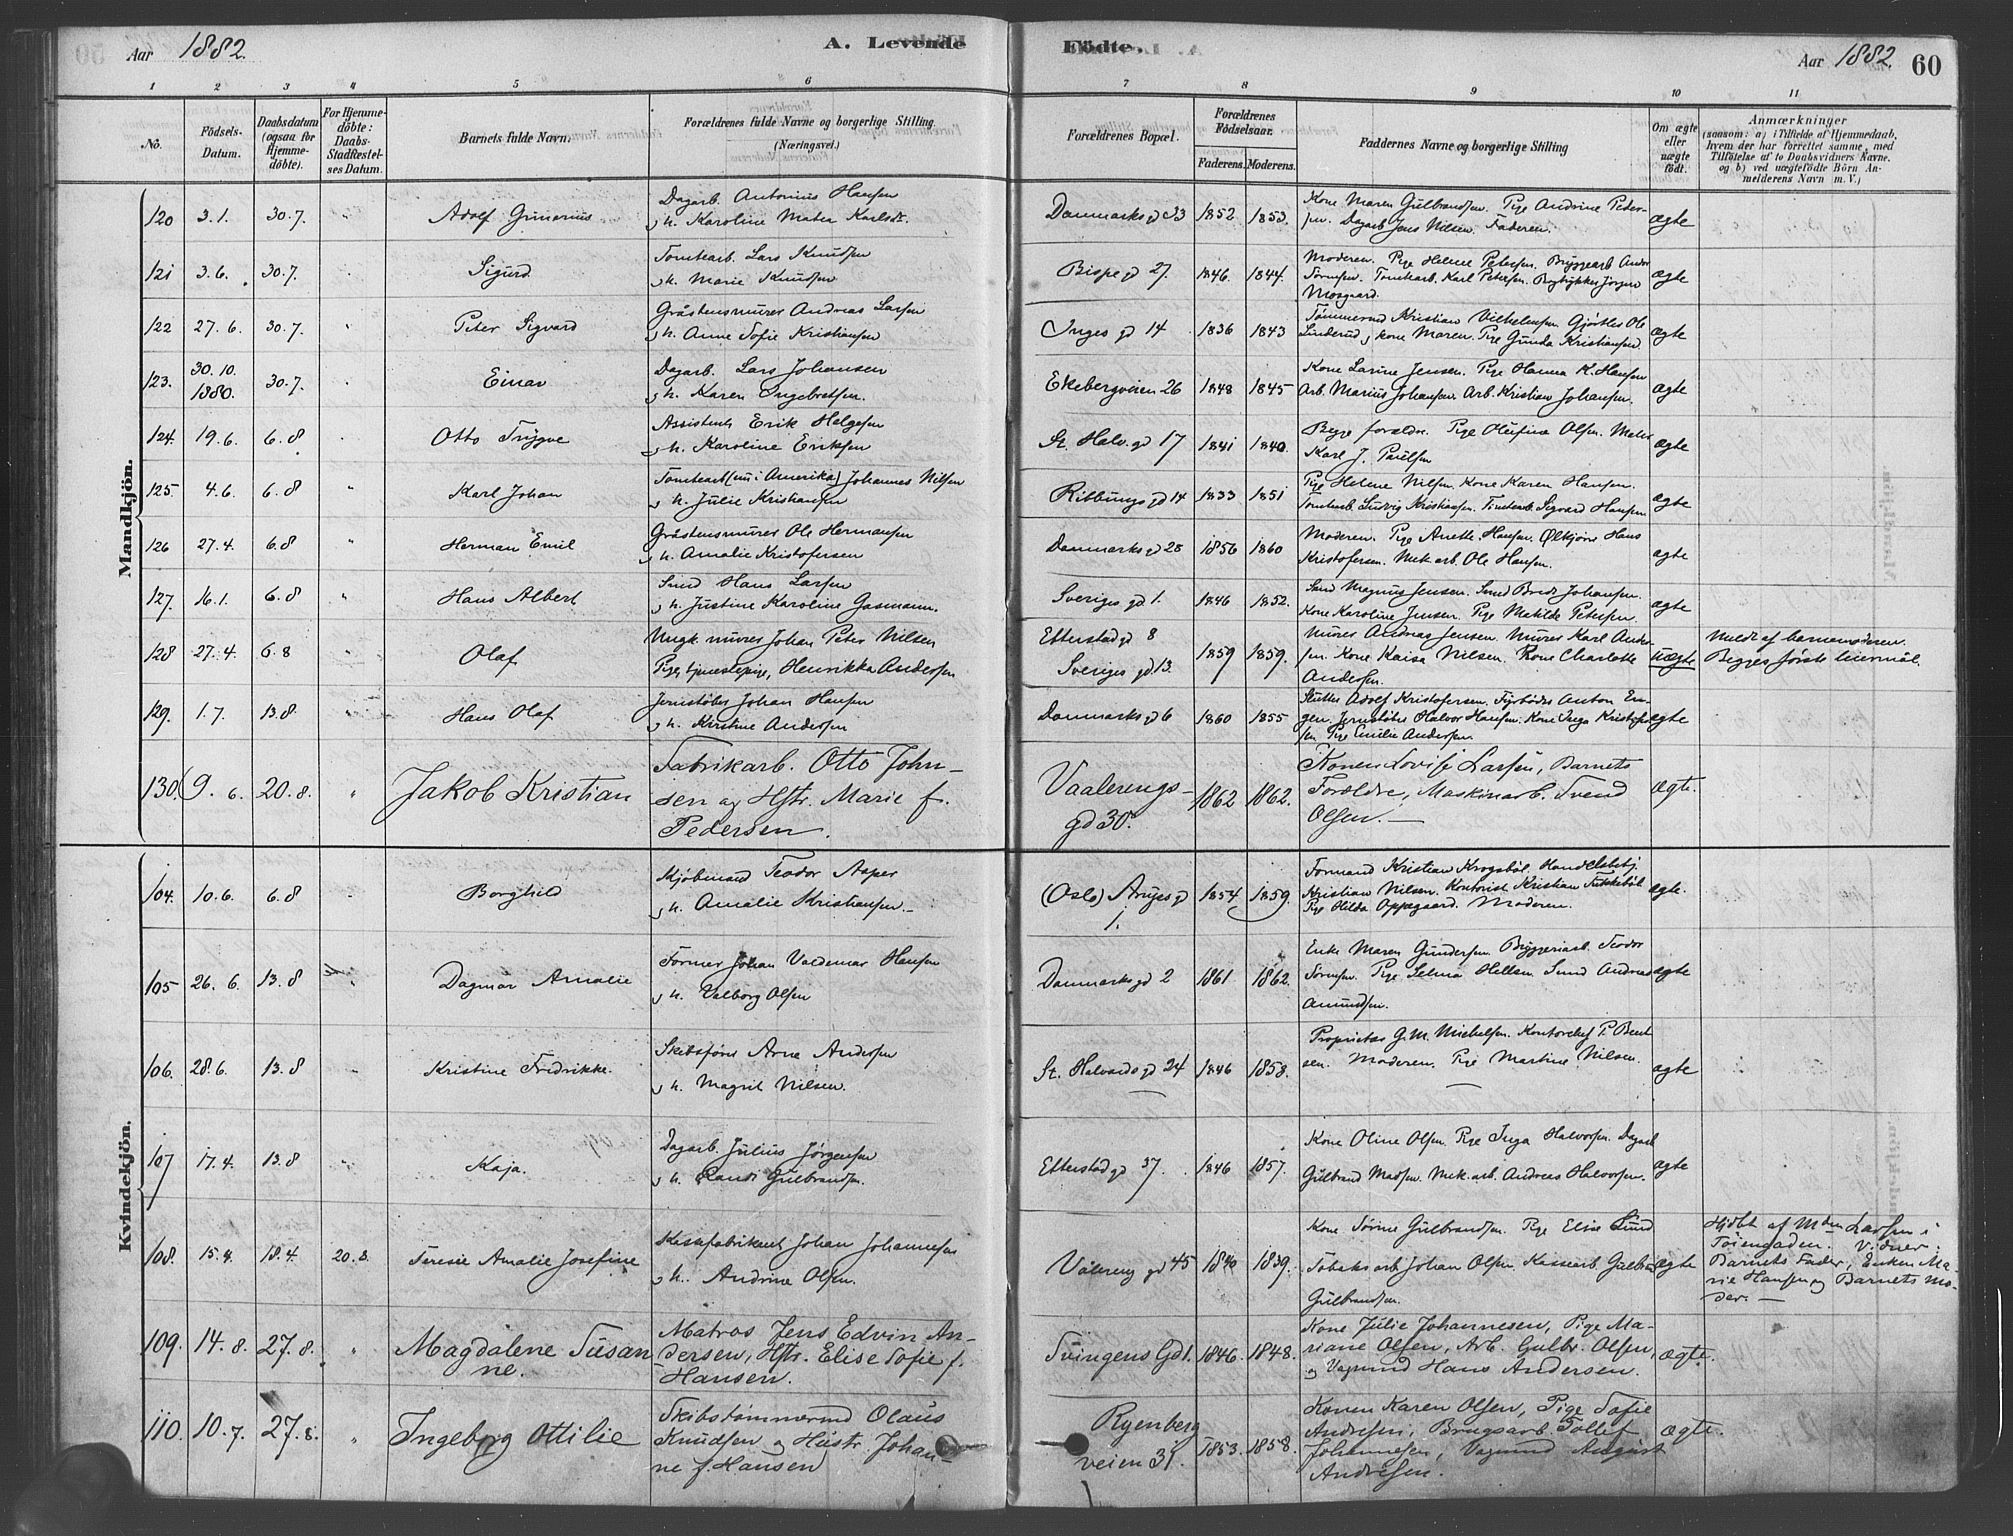 Aar 1882.
A. Levende
Födte.
Aar 1882.
60
1 2 3 4 5 6 7 8 9 10 11
No.
Födsels-
Datum.
Daabsdatum
(ogsaa for
Hjemme-
döbte).
For Hjemme-
döbte:
Daabs-
Stadfæstel-
ses Datum.
Barnets fulde Navn.
Forældrenes fulde Navne og borgerlige Stilling
(Næringsvei.)
Forældrenes Bopæl.
Forældrenes
Födselsaar.
Faderens. Moderens.
Faddernes Navne og borgerlige Stilling
Om ægte
eller
uægte
födt.
Anmærkninger
(saasom: a) i Tilfælde af Hjemmedaab,
hvem der har forrettet samme, med
Tilföielse af to Daabsvidners Navne.
og b) ved uægtefödte Börn An-
melderens Navn m. V.)
Mandkjön.
120 3.1. 30.7. Adolf Gunerius
Dagarb. Antonius Hansen
& h. Karoline Matea Karlsdt.
Danmarks gd 33 1852 1853.
Kone Maren Gulbrandsen. Pige Andrine Peder-
sen. Dagarb. Jens Nilsen. Faderen.
ægte
121 3.6. 30.7. Sigurd
Tomtearb. Lars Knudsen
& h. Marie Knudsen
Bispe gd 27. 1846. 1844.
Moderen. Pige Helene Petersen. Bryggearb. Andr
Tomtearb. Karl Petersen. Bogtrykker Jørgen
Mosgaard.
ægte
122 27.6. 30.7. Peter Sigvard
Gråstensmurer Andreas Larsen
& h. Anne Sofie Kristiansen
Inges gd 14 1836 1843
Tømmermd Kristian Vilhelmsen. Gjørtler Ole
Linderud & kone Maren. Pige Gunda Kristiansen.
ægte
123. 30.10.
1880. 30.7. Einar
Dagarb. Lars Johansen
& h. Karen Ingebretsen.
Ekebergveien 26 1848 1845
Kone Larine Jensen. Pige Hanna K. Hansen
Arb. Marius Johansen. Arb. Kristian Johansen.
ægte
124. 19.6. 6.8 Otto Trygve
Assistent Erik Helgesen
& h. Karoline Eriksen
St. Halv. gd 17 1841 1840.
Begge forældre. Pige Olefine Olsen. Maler
Karl J. Paulsen
ægte
125 4.6. 6.8 Karl Johan
Tomtearb (nu i Amerika) Johannes Nilsen
& h. Julie Kristiansen
Ribbungs gd 14 1833 1851
Pige Helene Nilsen. Kone Karen Hansen.
Tomtearb. Ludvig Kristiansen. Tomtearb. Sigvard Hansen
ægte
126 27.4. 6.8 Herman Emil
Gråstensmurer Ole Hermansen
& h. Amalie Kristofersen
Danmarks gd 28 1856 1860
Moderen. Pige Anette Hansen. Ølkjører Hans
Kristofersen. Mek. arb. Ole Hansen.
ægte
127. 16.1. 6.8 Hans Albert
Smed Hans Larsen
& h. Justine Karoline Gasmann.
Sveriges gd 1. 1846 1852.
Smed Magnus Jensen. Smed Bredr Johansen.
Kone Karoline Jensen. Pige Matilde Petersen.
ægte
128 27.4. 6.8 Olaf
Ungk. murer Johan Peter Nilsen
Pige, tjenestepige, Henrikka Andersen
Etterstad gd 8
Sveriges gd 13. 1859 1859.
Murer Andreas Jensen. Murer Karl Ander-
sen. Kone Kaisa Nilsen. Kone Charlotte
Andersen.
uægte
Meldt af barnemoderen
Begges første leiermål.
129. 1.7. 13.8. Hans Olaf
Jernstøber Johan Hansen
& h. Kirstine Andersen
Danmarks gd 6 1860 1855
Adolf Kristofersen. Fyrbøder Anton En-
gen. Jernstøber Halvor Hansen. Kone Inga Kristofer
sen Pige Emilie Andersen.
ægte
130. 9.6. 20.8. Jakob Kristian
Fabrikarb. Otto John-
sen og Hstr. Marie f.
Pedersen.
Vaalerengs-
gd 30. 1862 1862.
Konen Lovise Larsen, Barnets
Forældre, Maskinarb. Svend
Olsen.
Ægte.
Kvindekjön.
104. 10.6. 6.8 Borghild
Kjøbmand Teodor Asper
& h. Amalie Kristiansen.
(Oslo) Arups gd
1. 1854 1859.
Formand Kristian Krogsbøl. Handelsbetj.
Kristian Nilsen. Kontorist Kristian Fukkebøl
Pige Hilda Oppegaard. Moderen.
ægte.
105 26.6. 13.8 Dagmar Amalie
Former Johan Valdemar Hansen
& h. Valborg Olsen
Danmarks gd 2 1861 1862.
Enke Maren Gundersen. Bryggeriarb. Teodor
Pige Selma Hellsen. Smed Andreas
Amundsen.
ægte
106. 28.6. 13.8 Kristine Fredrikke.
Skibsfører Arne Andersen
& h. Magrit Nilsen.
St. Halvards gd 24 1846 1858.
Proprietær G. M. Michelsen. Kontorchef P. Bent
sen. Moderen. Pige Martine Nilsen.
ægte
107 17.4. 13.8 Kaja.
Dagarb. Julius Jørgensen
& h. Randi Gulbrandsen.
Etterstad gd 37. 1846 1857.
Kone Oline Olsen. Pige Inga Halvorsen. Dagarb
Gulbrand Madsen. Mek. arb. Andreas Halvorsen.
ægte
108. 15.4. 18.4. 20.8. Terese Amalie Josefine
Kassefabrikant Johan Johannesen
& h. Andrine Olsen.
Valereng gd 45 1840 1839.
Kone Sørine Gulbrandsen. Pige Elise Lund
Tobaks arb Johan Olsen Kassearb. Gulbr
Gulbrandsen.
ægte
Hjdbt af Mdm Larsen i
Tøiengaden. Vidner:
Barnets Fader, Enken Ma-
rie Hansen og Barnets Mo-
der.
109. 14.8. 27.8. Magdalene Susan
ne.
Matros Jens Edvin An-
dersen, Hstr. Elise Sofie f.
Hansen.
Svingens Gd 1. 1846. 1848.
Kone Julie Johannesen, Pige Ma-
riane Olsen, Arb. Gulbr. Olsen,
& Vognmd Hans Andersen.
Ægte.
110. 10.7. 27.8. Ingeborg Ottilie
Skibstømmermd Olaus
Knudsen og Hustr. Johan-
ne f. Hansen
Ryenberg
veien 31. 1853. 1858.
Konen Karen Olsen, Pige Sofie
Andresen, Brugsarb. Tollef
Johannesen, Vognmd August
Andresen.
Ægte.